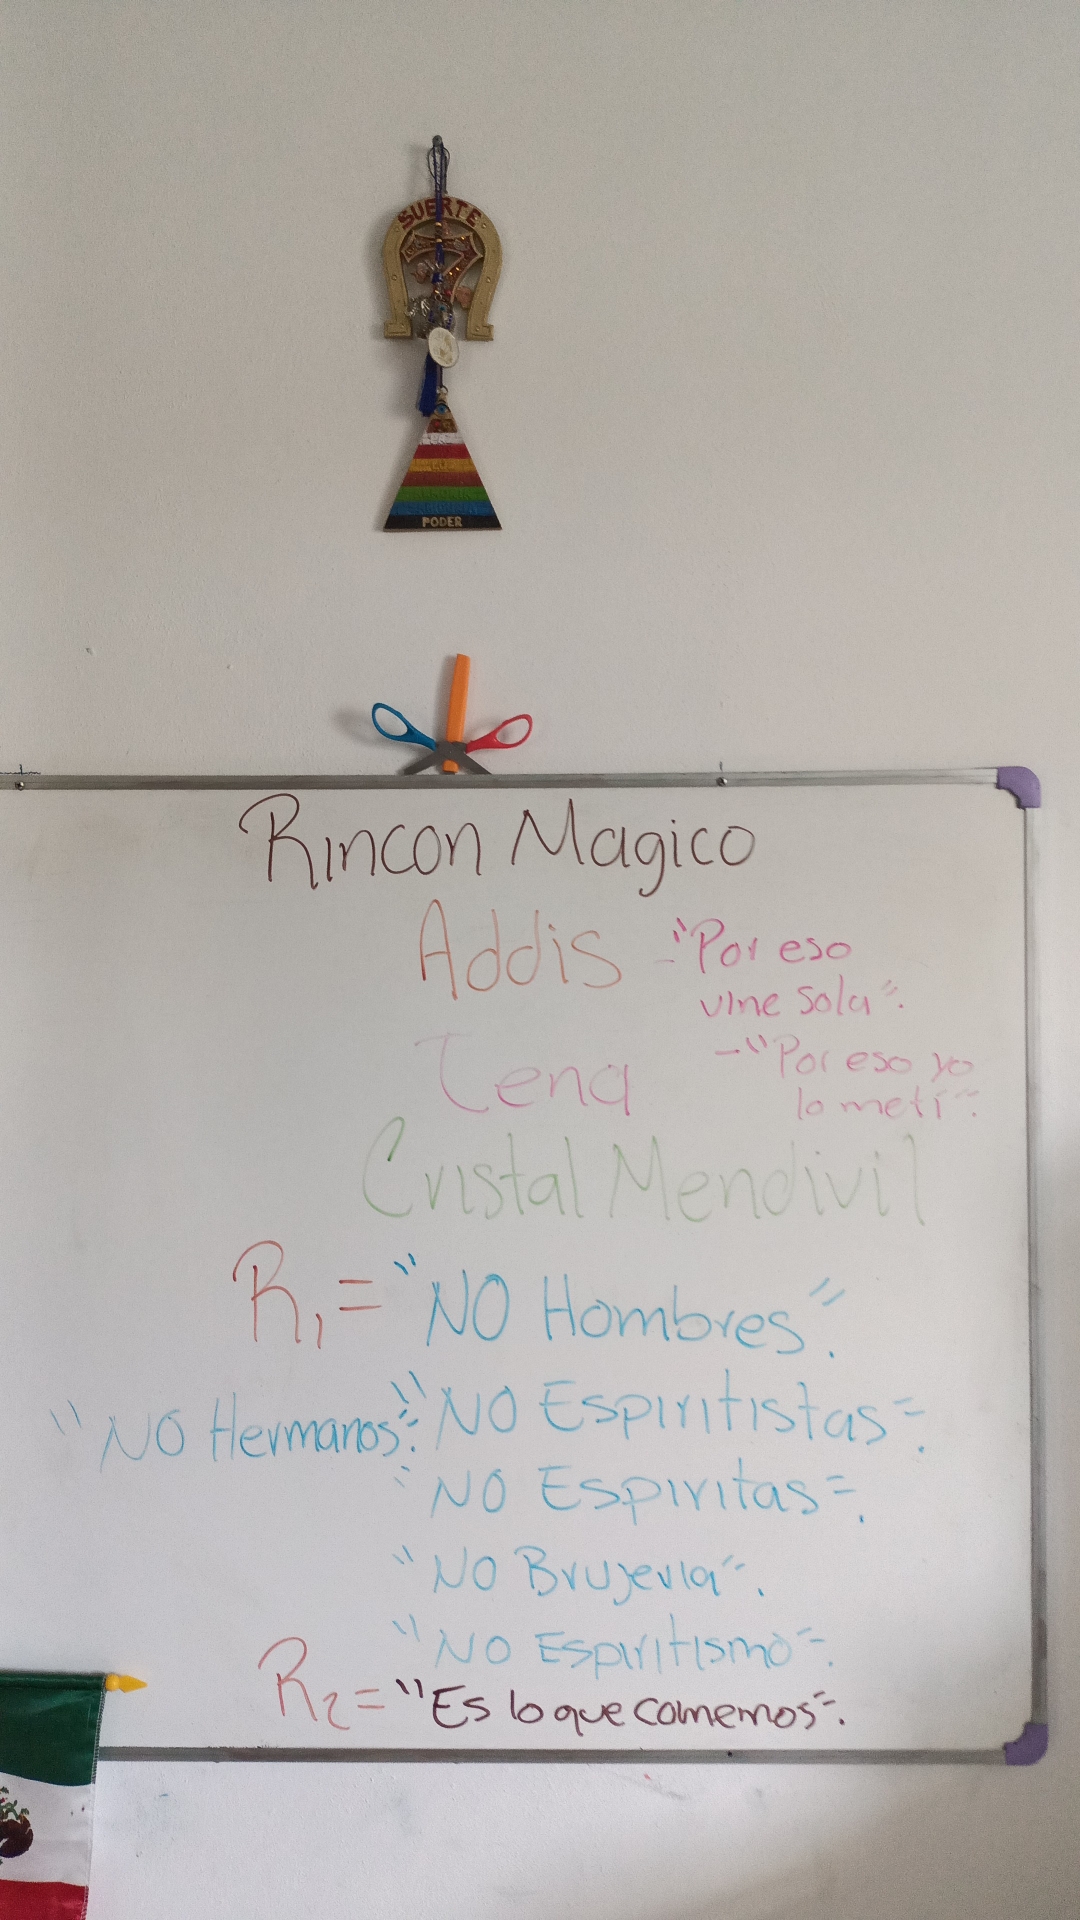 SUERTE
7
PODER
Rincon Magico
Addis -"Por eso
vine sola".
Tena -"Por eso yo
lo metí".
Cristal Mendivil
R1= "NO Hombres".
"NO Hermanos". "NO Espiritistas".
"NO Espiritas".
"NO Brujeria".
"NO Espiritismo".
R2= "Es lo que comemos".